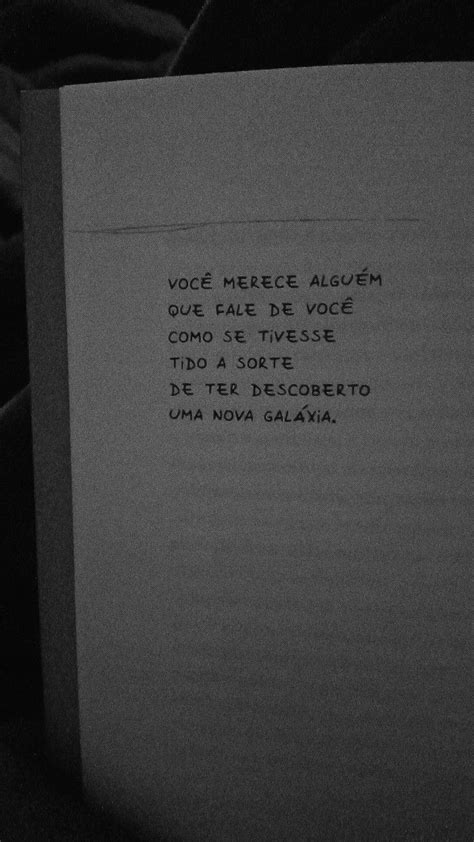 VOCÊ MERECE ALGUÉM
QUE FALE DE VOCÊ
COMO SE TIVESSE
TIDO A SORTE
DE TER DESCOBERTO
UMA NOVA GALÁXIA.